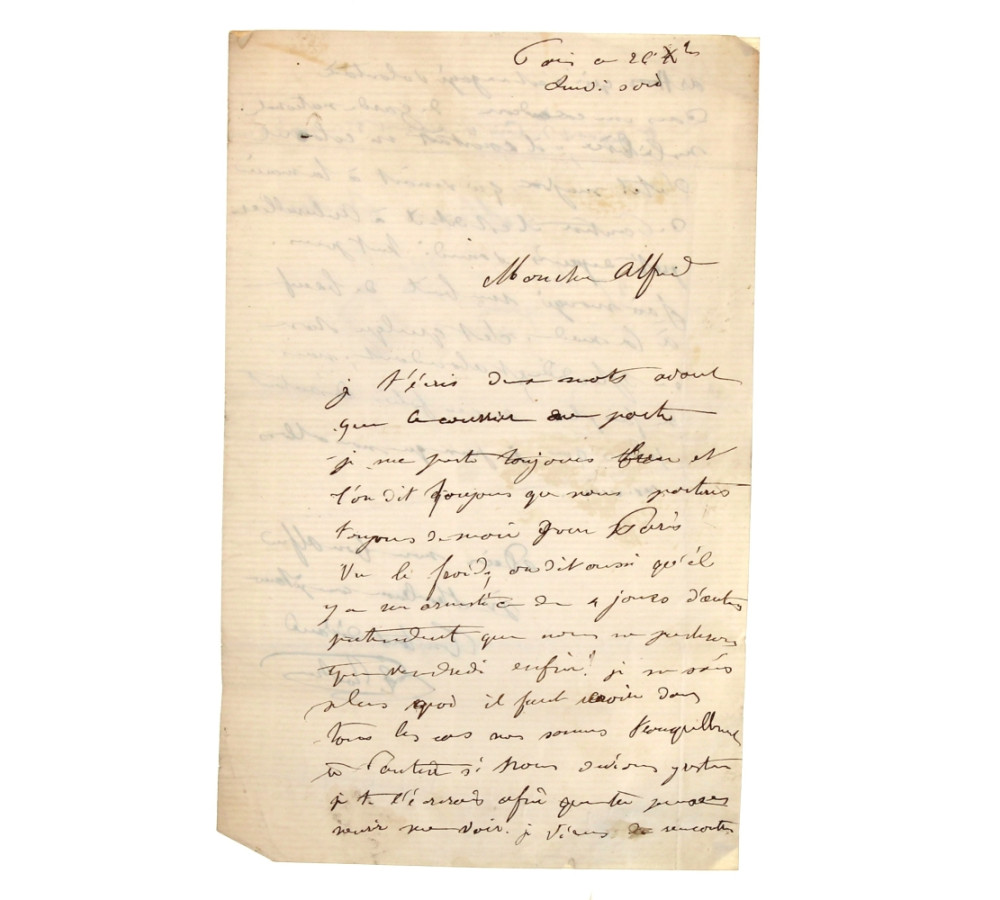 Paris ce 26 Xbre
Lundi soir
Mon cher Alfred
je t'écris deux mots avant
que le courrier ne parte
je me porte toujours bien et
l'on dit toujours que nous partons
toujours demain pour Paris
Vu le froid, on dit aussi qu'il
y a un armistice de 4 jours d'autres
prétendent que nous ne partirons
que vendredi enfin! je ne sais
plus quoi il faut croire dans
tous les cas nous sommes tranquillement
à Pantin si nous devions rester
je te l'écrirais afin que tu puisses
venir me voir. je viens de rencontrer